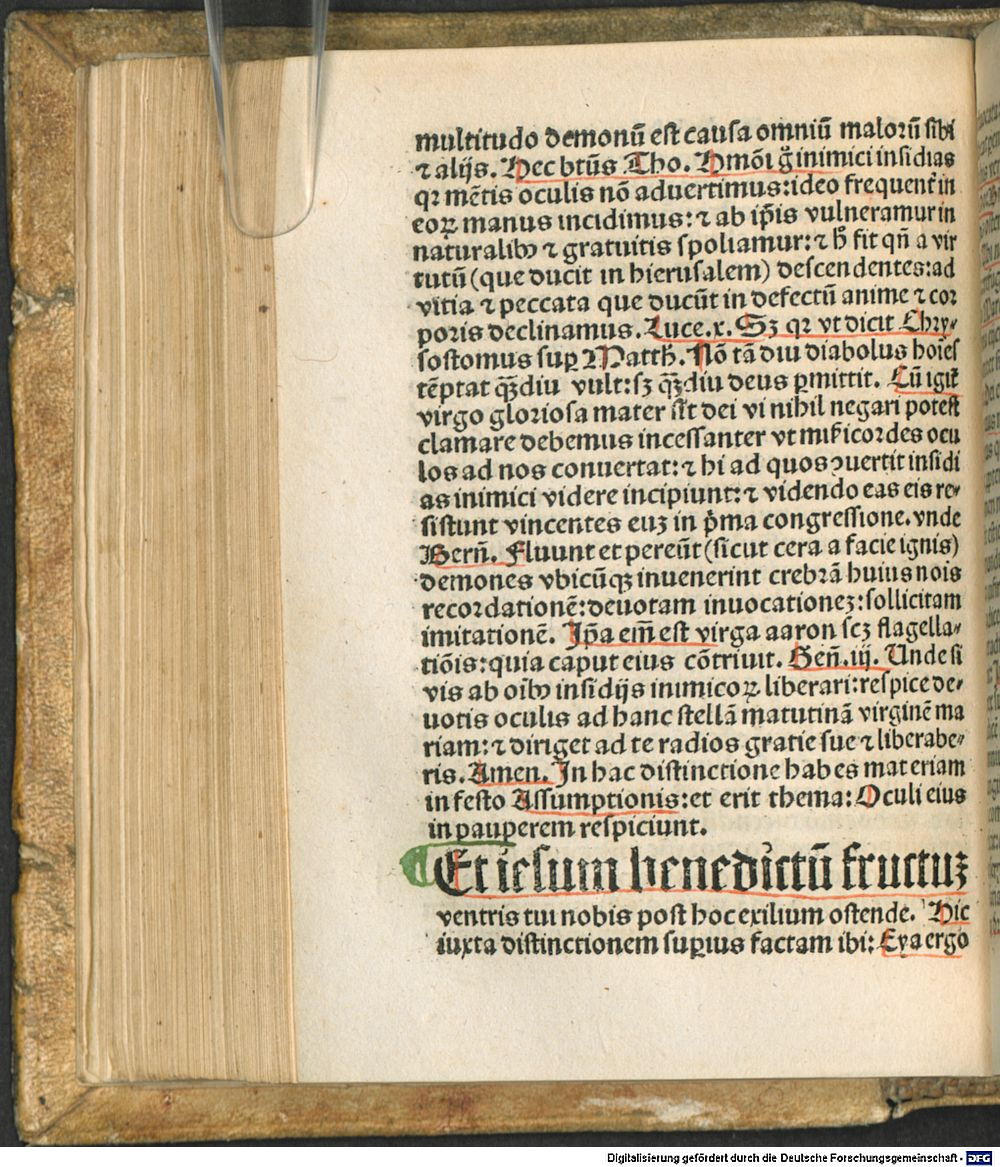 multitudo demonū est causa omniū maloꝝ sibi
⁊ alijs. Hec btūs Tho. Hmōi g̊ inimici insidias
qꝛ mētis oculis nō aduertimus: ideo frequent̄ in
eoꝝ manus incidimus: ⁊ ab ip̄is vulneramur in
naturalibꝰ ⁊ gratuitis spoliamur: ⁊ h̄ fit qn̄ a vir
tutū (que ducit in hierusalem) descendentes: ad
vitia ⁊ peccata que ducūt in defectū anime ⁊ cor
poris declinamus. Luce.x. Sꝫ qꝛ vt dicit Chry-
sostomus suꝑ Matth̄. Nō tā diu diabolus hoīes
tēptat qꝫdiu vult: sꝫ qꝫdiu deus ꝑmittit. Cū igit̄
virgo gloriosa mater sit dei vi nihil negari potest
clamare debemus incessanter vt mīcordes ocu
los ad nos conuertat: ⁊ hi ad quos ꝯuertit insidi
as inimici videre incipiunt: ⁊ videndo eas eis re-
sistunt vincentes euꝫ in p̄ma congressione. vnde
Bern̄. Fluunt et pereūt (sicut cera a facie ignis)
demones vbicūqꝫ inuenerint crebrā huius nois
recordationē: deuotam inuocationeꝫ: sollicitam
imitationē. Ip̄a em̄ est virga aaron scꝫ flagella-
tiōis: quia caput eius cōtriuit. Gen̄.iij. Unde si
vis ab oībꝰ insidijs inimicoꝝ liberari: respice de-
uotis oculis ad hanc stellā matutinā virginē ma
riam: ⁊ diriget ad te radios gratie sue ⁊ liberabe-
ris. Amen. In hac distinctione habes materiam
in festo Assumptionis: et erit thema: Oculi eius
in pauperem respiciunt.
¶ Et iesum benedictū fructuꝫ
ventris tui nobis post hoc exilium ostende. Hic
iuxta distinctionem suꝑius factam ibi: Eya ergo
Digitalisierung gefördert durch die Deutsche Forschungsgemeinschaft - DFG